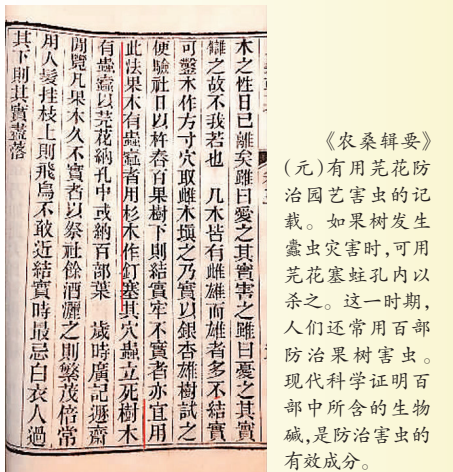 木之性日已離矣雖曰愛之其實害之雖曰憂之其實
讎之故不我若也 凡木皆有雌雄而雄者多不結實
可鑿木作方寸穴取雌木填之乃實以銀杏雄樹試之
便驗社日以杵舂百果樹下則結實牢不實者亦宜用
此法果木有蟲蠹者用杉木作釘塞其穴蟲立死樹木
有蟲蠹以芫花納孔中或納百部葉 歲時廣記遯齋
閒覽凡果木久不實者以祭社餘酒灑之則繁茂倍常
用人髮挂枝上則飛鳥不敢近結實時最忌白衣人過
其下則其實盡落
《农桑辑要》
(元)有用芫花防
治园艺害虫的记
载。如果树发生
蠹虫灾害时,可用
芫花塞蛀孔内以
杀之。这一时期,
人们还常用百部
防治果树害虫。
现代科学证明百
部中所含的生物
碱,是防治害虫的
有效成分。